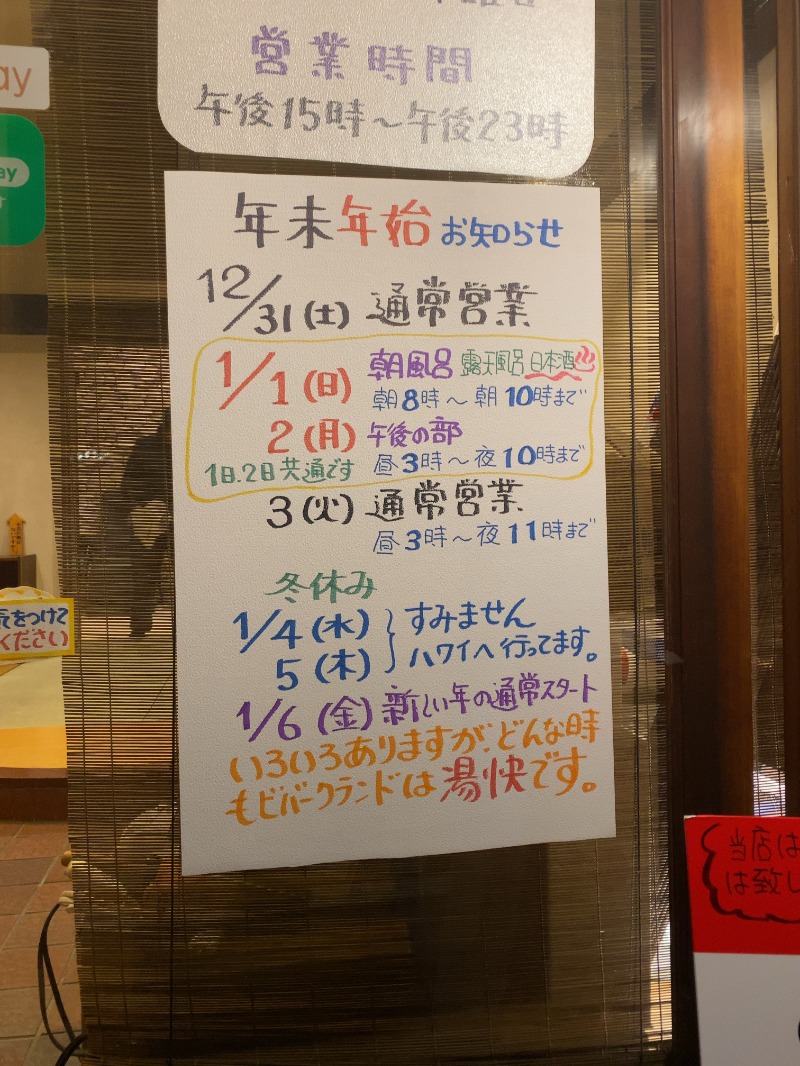 営業時間
午後15時～午後23時
年末年始お知らせ
12/31(土) 通常営業
1/1(日) 朝風呂 露天風呂 日本酒♨
朝8時～朝10時まで
2(月) 午後の部
1日.2日共通です 昼3時～夜10時まで
3(火) 通常営業
昼3時～夜11時まで
冬休み
1/4(水) すみません
5(木) ハワイへ行ってます。
1/6(金) 新しい年の通常スタート
いろいろありますが、どんな時
もビバークランドは湯快です。
ay
ay
気をつけて
ください
当店は
は致し